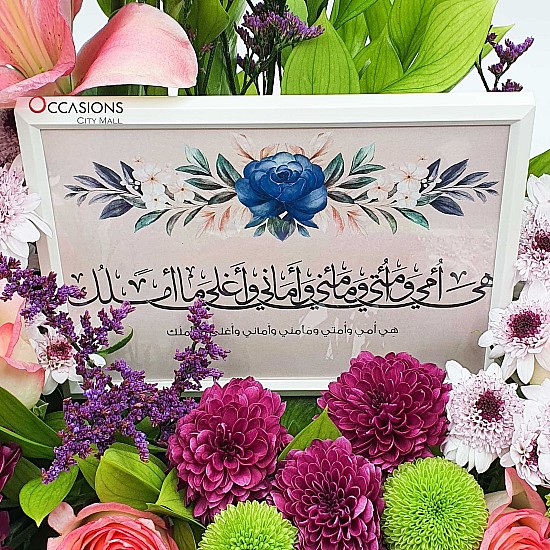 OCCASIONS
CITY MALL
هِيَ أُمي وَ أُمَّتي وَ مَأمَني وَ أَماني وَ أَغلى ما أَملُك
هِي أمي وأمتي ومامني وأماني وأغلى